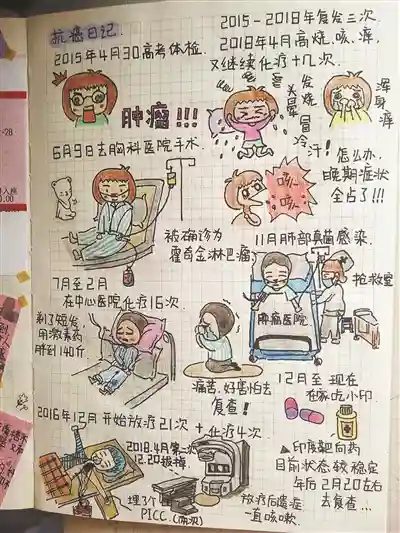 抗癌日记
2015年4月30高考体检.
肿瘤!!!
2015-2018年复发三次.
2018年4月高烧.咳.痒
又继续化疗十几次
发烧
头晕
冒冷汗!
浑身痒
6月9日去胸科医院手术.
被确诊为
霍奇金淋巴瘤
咳
咳
怎么办,
晚期症状
全占了!!!
11月肺部真菌感染.
抢救室
肿瘤医院
7月至2月
在中心医院化疗16次
剃了短发,
用激素药
胖到140斤
痛苦.好害怕去
复查!
12月至现在
在家吃小印.
2016年12月开始放疗21次+化疗4次
2018.4月第二次
2.20拔掉.
埋了3个
PICC.(两次)
放疗后遗症
一直咳嗽.
▲印度靶向药
目前状态较稳定
年后2月20左右
去复查...